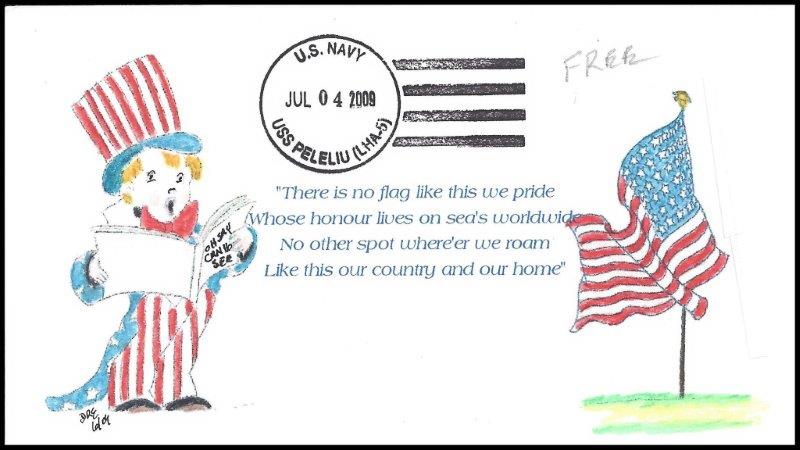 U.S. NAVY
JUL 04 2009
USS PELELIU (LHA-5)
FREE
"There is no flag like this we pride
Whose honour lives on sea's worldwide
No other spot where'er we roam
Like this our country and our home"
OH SAY
CAN U
SEE
DRE